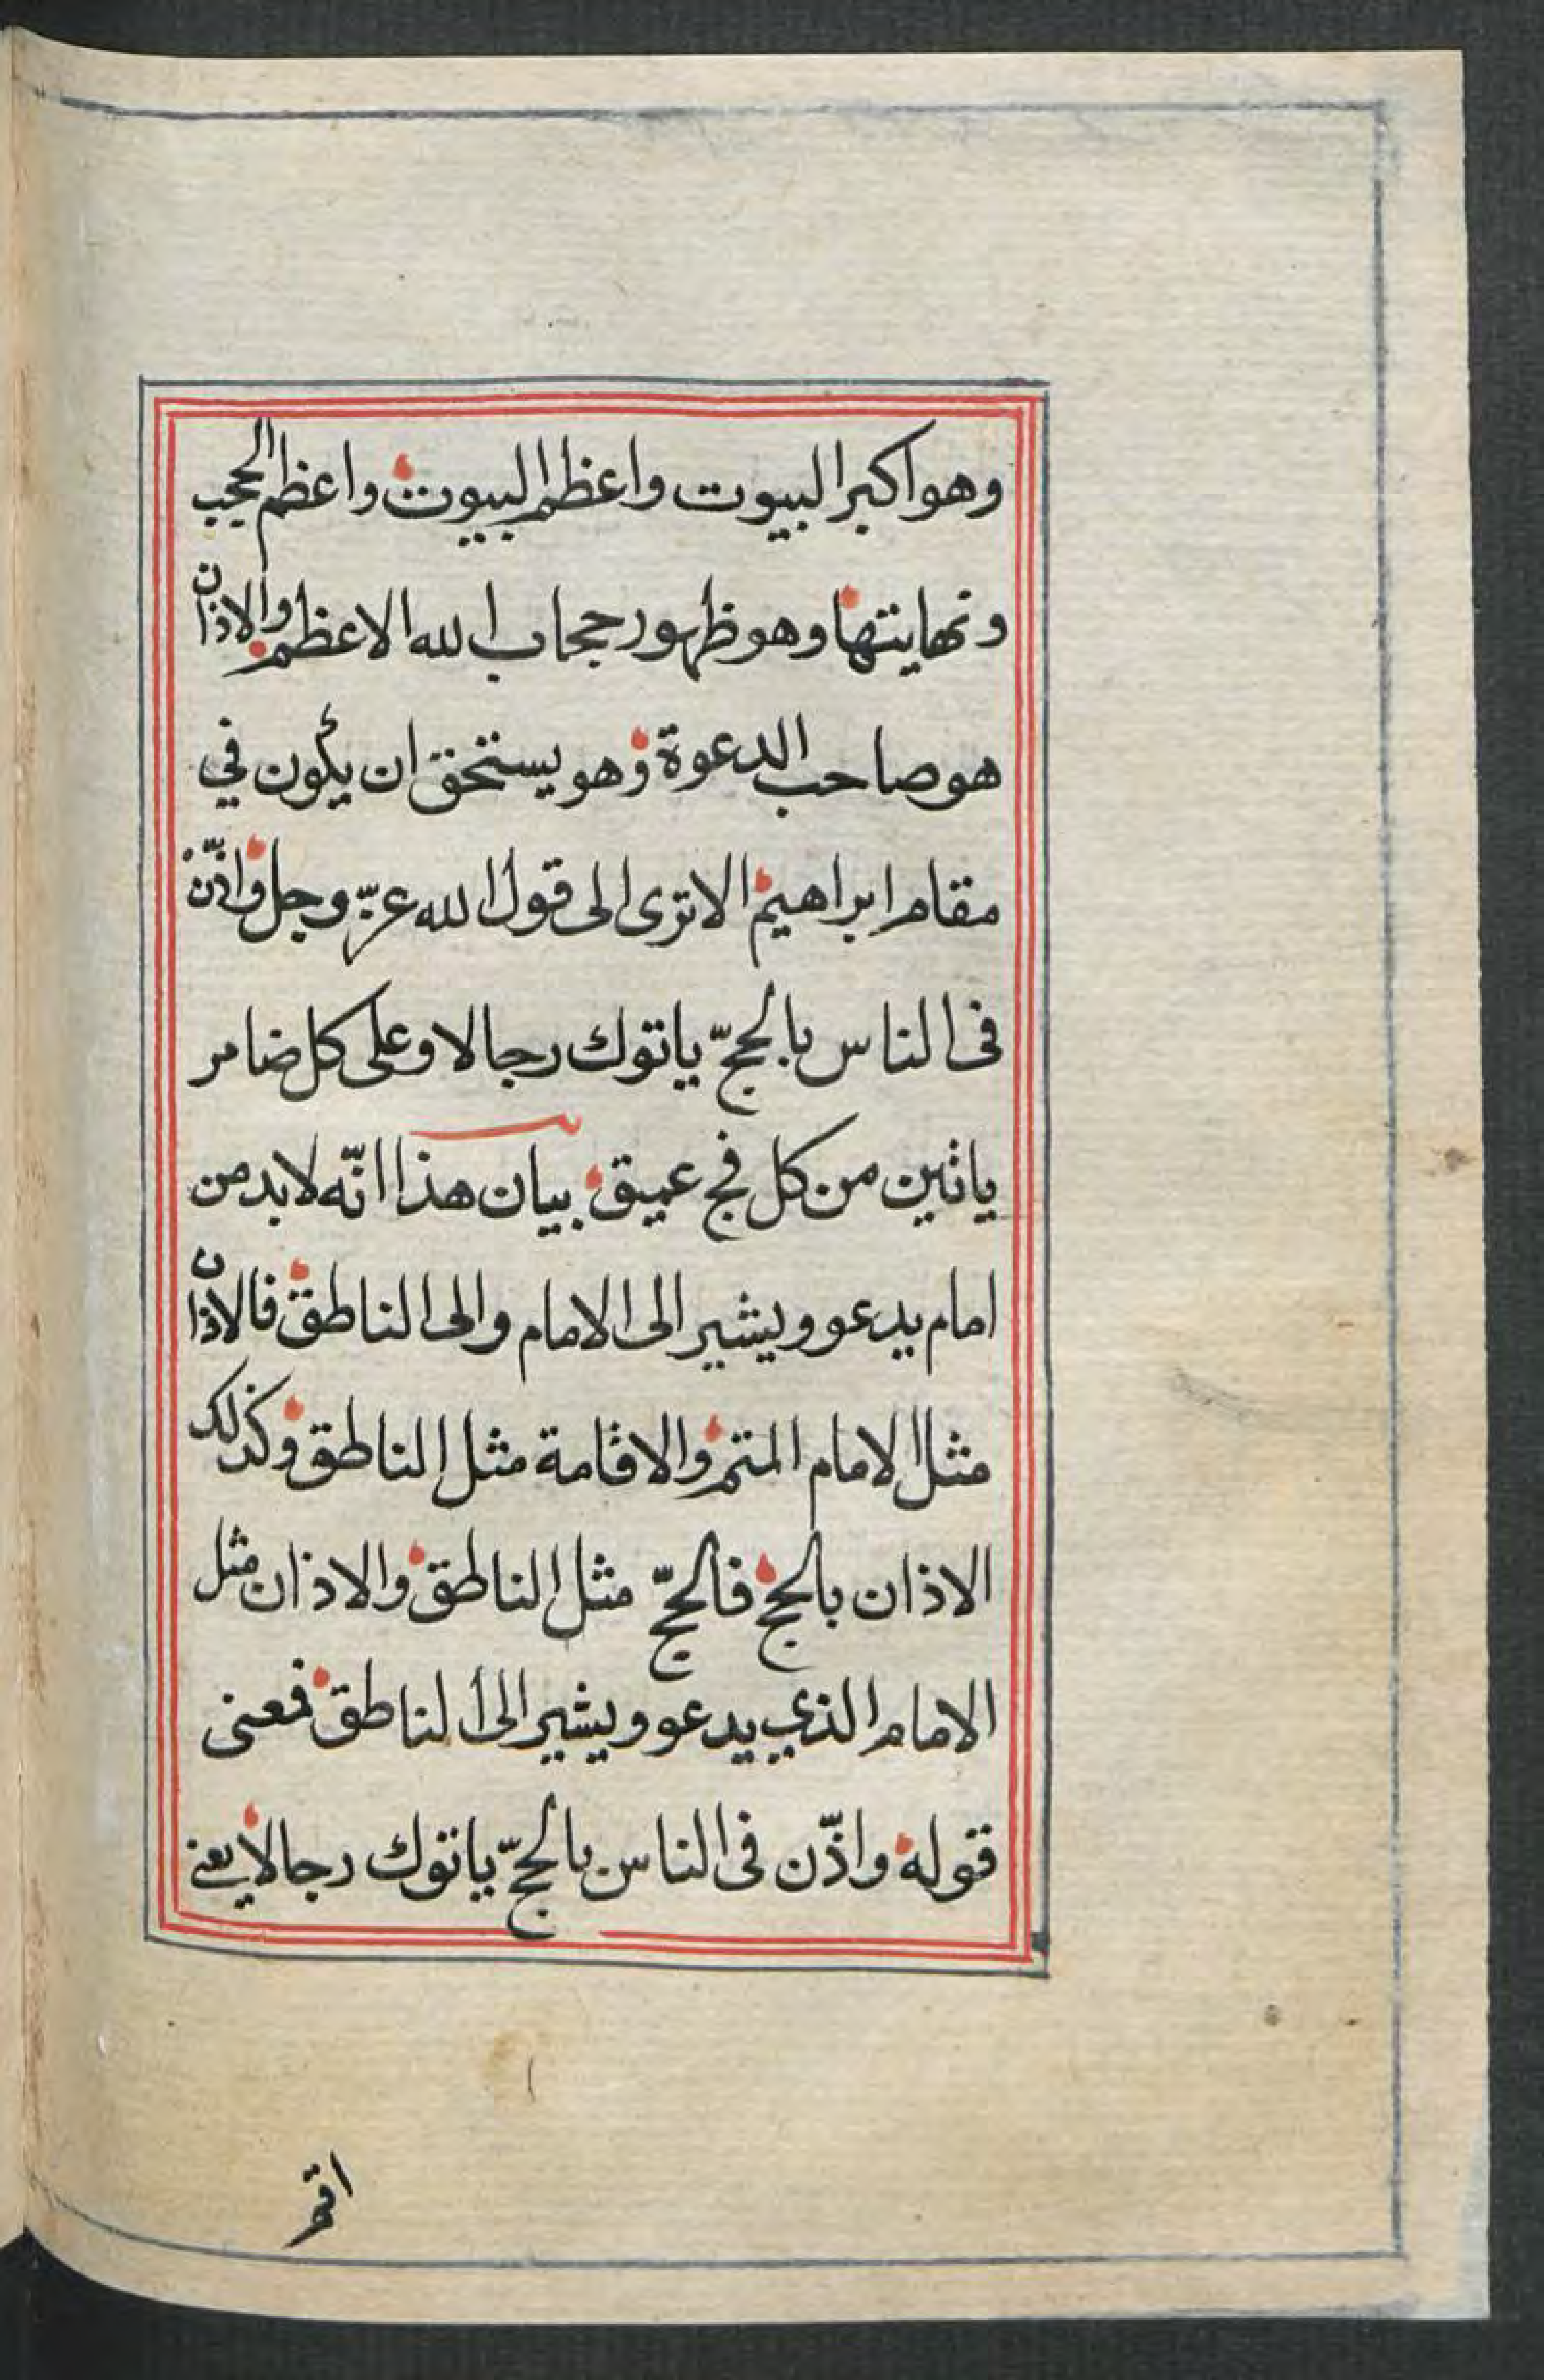 وهو اكبر البيوت واعظم البيوت واعظم الحجب
ونهايتها وهو ظهور حجاب الله الاعظم والاذان
هو صاحب الدعوة وهو يستحق ان يكون في
مقام ابراهيم الا ترى الى قول الله عزّ وجل واذّن
فى الناس بالحجّ ياتوك رجالا وعلى كل ضامر
ياتين من كل فج عميق بيان هذا انّه لا بد من
امام يدعو ويشير الى الامام والى الناطق فالاذان
مثل الامام المتم والاقامة مثل الناطق وكذلك
الاذان بالحج فالحجّ مثل الناطق والاذان مثل
الامام الذي يدعو ويشير الى الناطق فمعنى
قوله واذّن فى الناس بالحجّ ياتوك رجالا يعني
اقم